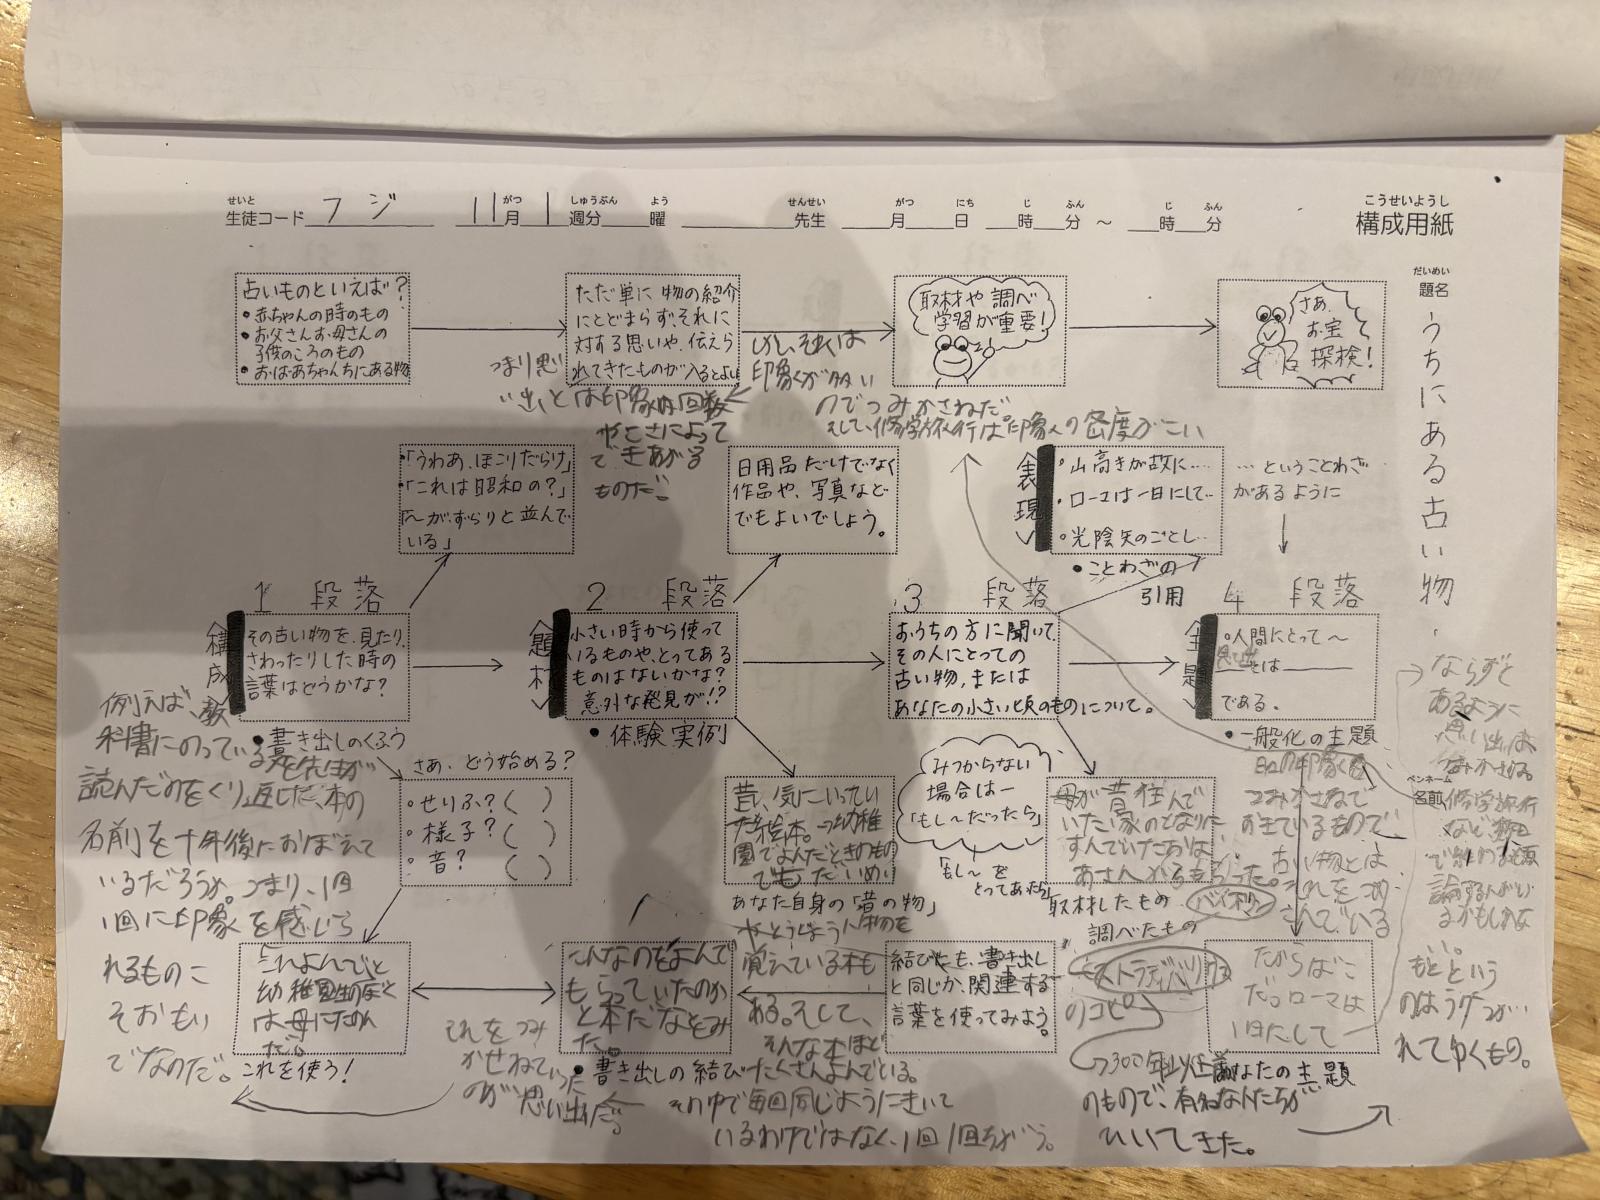 こうせいようし
構成用紙
せいと
生徒コード フジ
がつ しゅうぶん よう
11月 1 週分 曜
せんせい
先生
がつ にち じ ふん じ ふん
月 日 時 分 ～ 時 分
だいめい
題名
うちにある古い物.
ペンネーム
名前
古いものといえば?
・赤ちゃんの時のもの
・お父さんお母さんの
子供のころのもの
・おばあちゃんちにある物
ただ単に物の紹介
にとどまらず、それに
対する思いや、伝えら
れてきたものが入るとよい
取材や調べ
学習が重要!
さあ、
お宝
探検!
つまり思
い出とは印象の回数
やこさによって
できあがる
ものだ。
しかし、それは
印象が多い
のでつみかさねだ
そして、修学旅行は印象への密度がこい
・「うわあ、ほこりだらけ」
・「これは昭和の?」
「～がずらりと並んで
いる」
日用品だけでなく
作品や、写真など
でもよいでしょう。
表現
・山高きが故に……
・ローマは一日にして…
・光陰矢のごとし…
…ということわざ
があるように
・ことわざの
引用
1 段落
構成
その古い物を、見たり、
さわったりした時の
言葉はどうかな?
・書き出しのくふう
2 段落
題材
小さい時から使って
いるものや、とってある
ものはないかな?
意外な発見が!?
・体験実例
3 段落
おうちの方に聞いて、
その人にとっての
古い物、または
あなたの小さい頃のものについて。
4 段落
主題
・人間にとって～
とは
である.
・一般化の主題
例えば、教
科書にのっている
読んだのをくり返した、本の
名前を十年後におぼえて
いるだろうか。つまり、1回
1回に印象を感じら
れるものこ
そおもい
でなのだ。
さあ、どう始める?
・せりふ?( )
・様子?( )
・音? ( )
昔、気にいってい
た絵本。幼稚
園でよんだときのもの
でも
あなた自身の「昔の物」
みつからない
場合は―
「もし～だったら」
「もし～を
とってあったら」
母が昔住んで
いた家のとなりに
すんでいたおば
あさんからもらった。
バイオリン
取材したもの
調べたもの
ストラディバリウス
のコピー
300年以上前
のもので、有名な人たちが
ひいてきた。
これよんでと
幼稚園生のぼく
は母にたのん
だ。
これを使う!
それをつみ
かせねていった
のが思い出だ。
こんなのをよんで
もらっていたのか
と本だなをみ
た。
・書き出しの結び
覚えている本も
ある。そして、
そんな本ほど
たくさんよんでいる。
その中で毎回同じようにきいて
いるわけではなく、1回1回ちがう。
結びにも、書き出し
と同じか、関連する
言葉を使ってみよう。
だからばこ
だ。ローマは
1日にして
あなたの主題
つみかさねて
おきているもので、
古い物とは
それをつめ
こんでいる
ならずと
あるように
思い出は
つみかさねる。
修学旅行
など
もとという
のは
れてゆくもの。